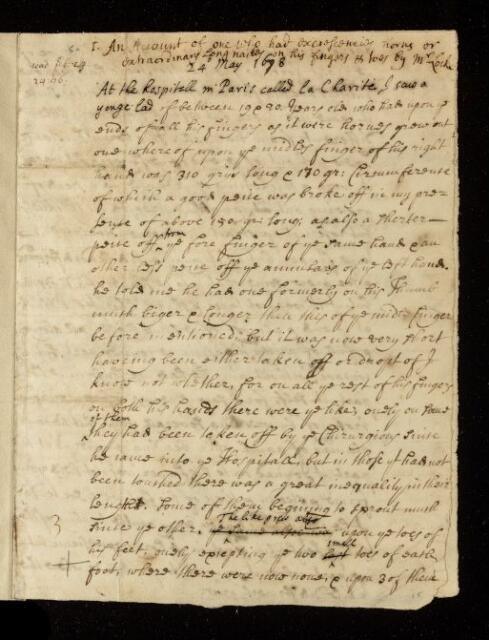 1. An Account of one who had excrescencies horns or
extraordinary long nailes on his fingers & toes by Mr Locke
24 May 1678
read feb. 24
At the hospitall in Paris called la Charite, I saw a
yonge lad of between 19 & 20 years old who had upon ye
ends of all his fingers as it were hornes grew out
one whereof upon ye midle finger of his right
hand was 310 grys long & 170 gr: Circumference
of which a good peice was broke off in my pre-
sence of above 150 gr: long; as also a shorter
peice off from ye fore finger of ye same hand & an
other less peice off ye annularis of ye left hand.
he told me he had one formerly on his Thumb
much biger & longer then this of ye midle finger
before mentioned, but it was now very short
haveing been either taken off or dropt of I
know not whether, for on all ye rest of his fingers
on both his hands there were ye like, onely on some
of them
they had been taken off by ye Chirurgions since
he came into ye Hospitall, but in those yt had not
been touched there was a great inequality in their
lenght. some of them begining to sprout much
since ye other. The like grew also upon ye toes of
3
his feet, onely excepting ye two small toes of each
foot, where there were now none, & upon 3 of their